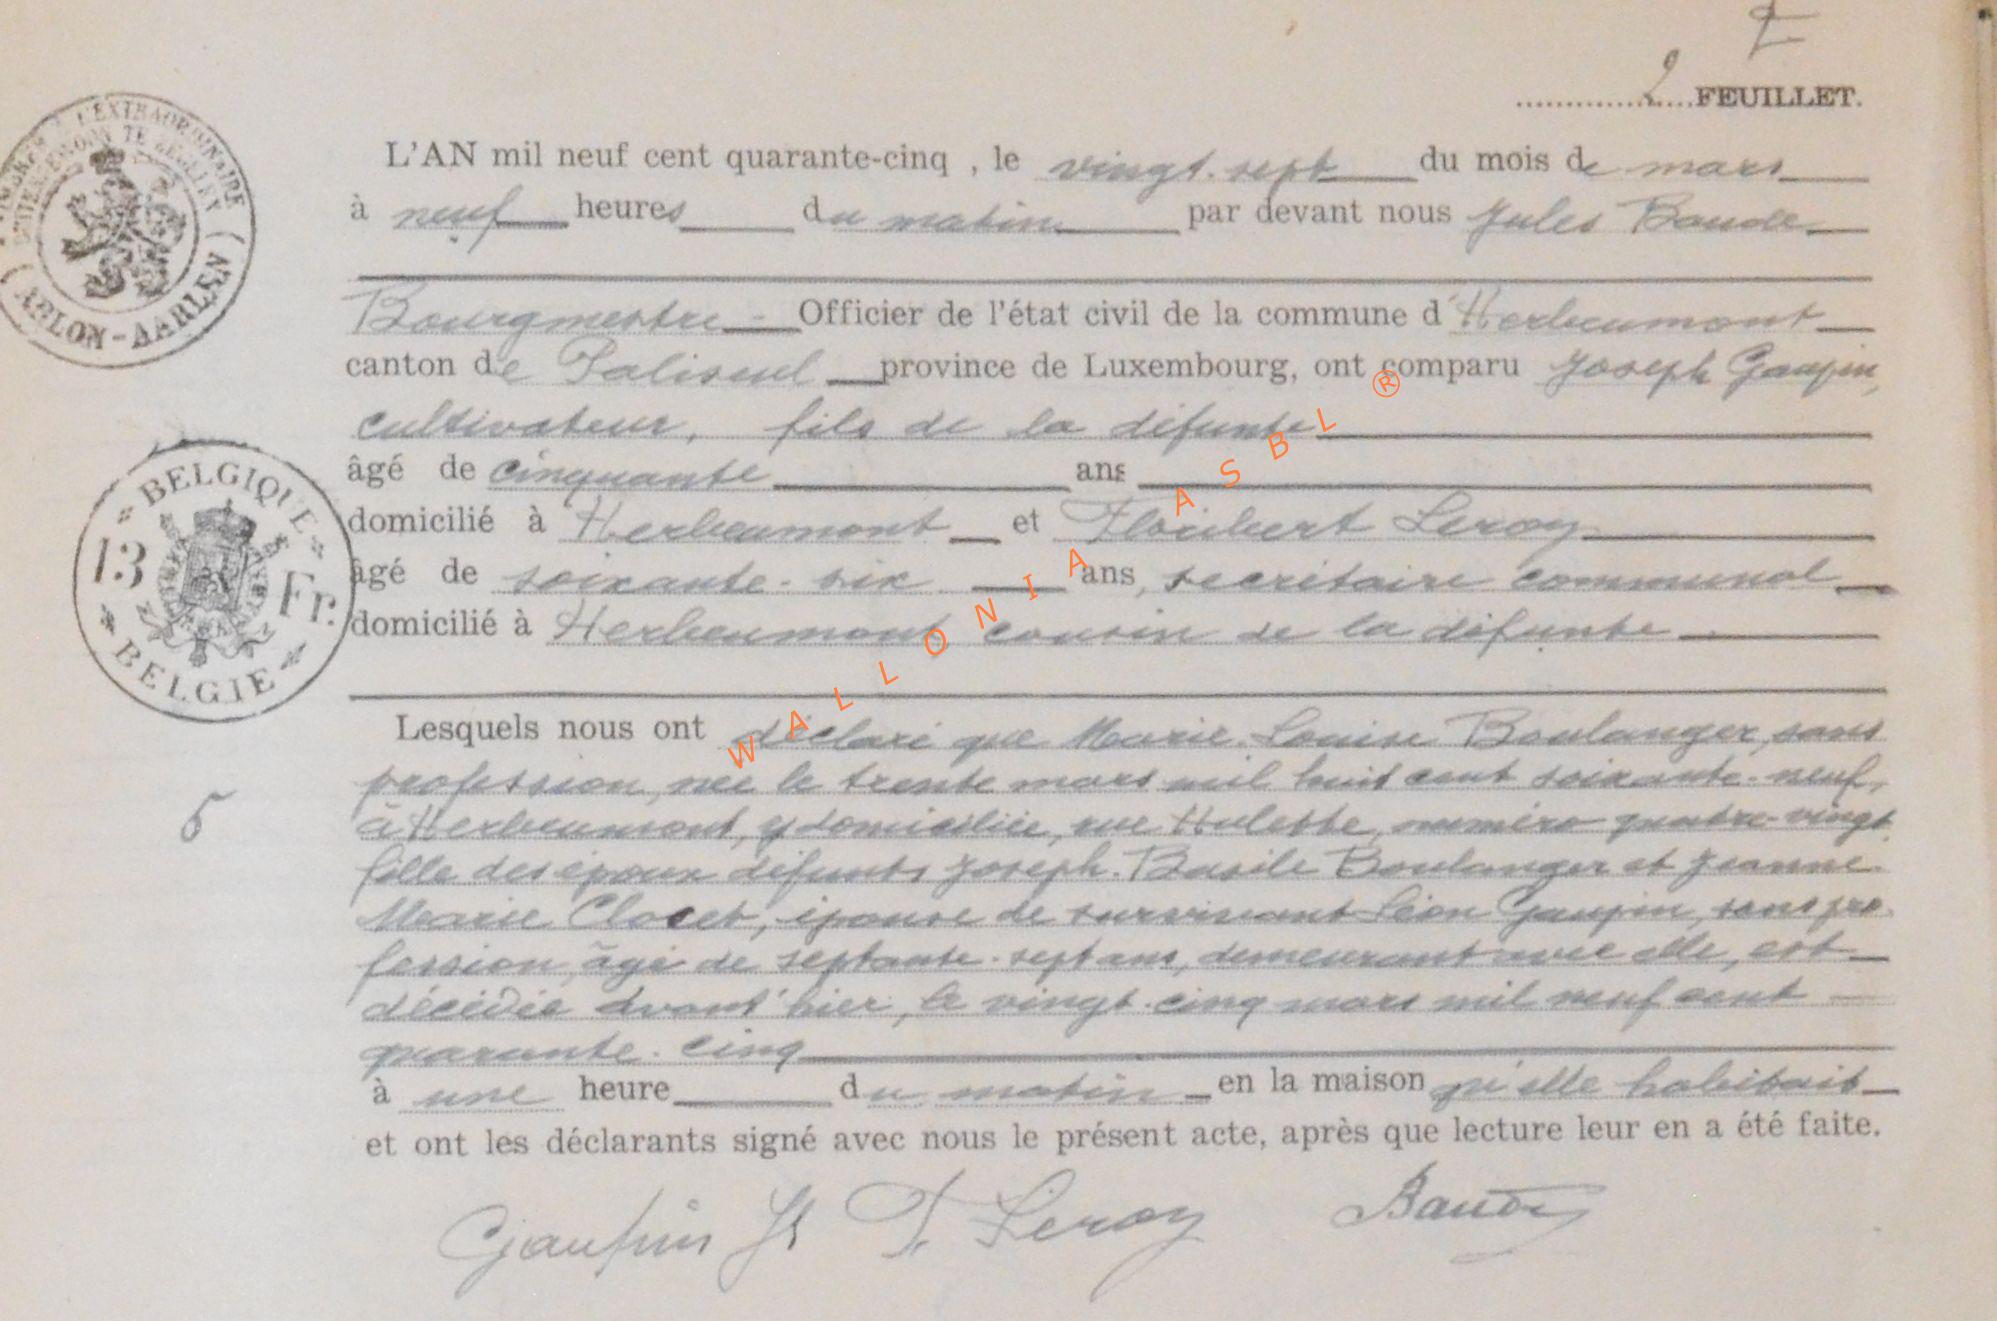 2 FEUILLET.
L'AN mil neuf cent quarante-cinq , le vingt-sept du mois de mars
à neuf heures du matin par devant nous Jules Baude
Bourgmestre - Officier de l'état civil de la commune d'Herbeumont
canton de Paliseul province de Luxembourg, ont comparu Joseph Gaupin,
cultivateur, fils de la défunte
âgé de cinquante ans
domicilié à Herbeumont et Floribert Leroy
âgé de soixante-six ans, secrétaire communal
domicilié à Herbeumont cousin de la défunte
Lesquels nous ont déclaré que Marie-Louise Boulanger, sans
profession, née le trente mars mil huit cent soixante-neuf,
à Herbeumont, y domiciliée, rue Hulette, numéro quatre-vingt
fille des époux défunts Joseph-Basile Boulanger et Jeanne-
Marie Closet, épouse de survivant Léon Gaupin, sans pro-
fession, âgé de septante-sept ans, demeurant avec elle, est
décédée avant'hier, le vingt-cinq mars mil neuf cent
quarante-cinq
à une heure du matin en la maison qu'elle habitait
et ont les déclarants signé avec nous le présent acte, après que lecture leur en a été faite.
Gaupin Js F. Leroy Baude
5
ARLON-AARLEN
BELGIQUE
13 Fr.
BELGIE
WALLONIA ASBL ®